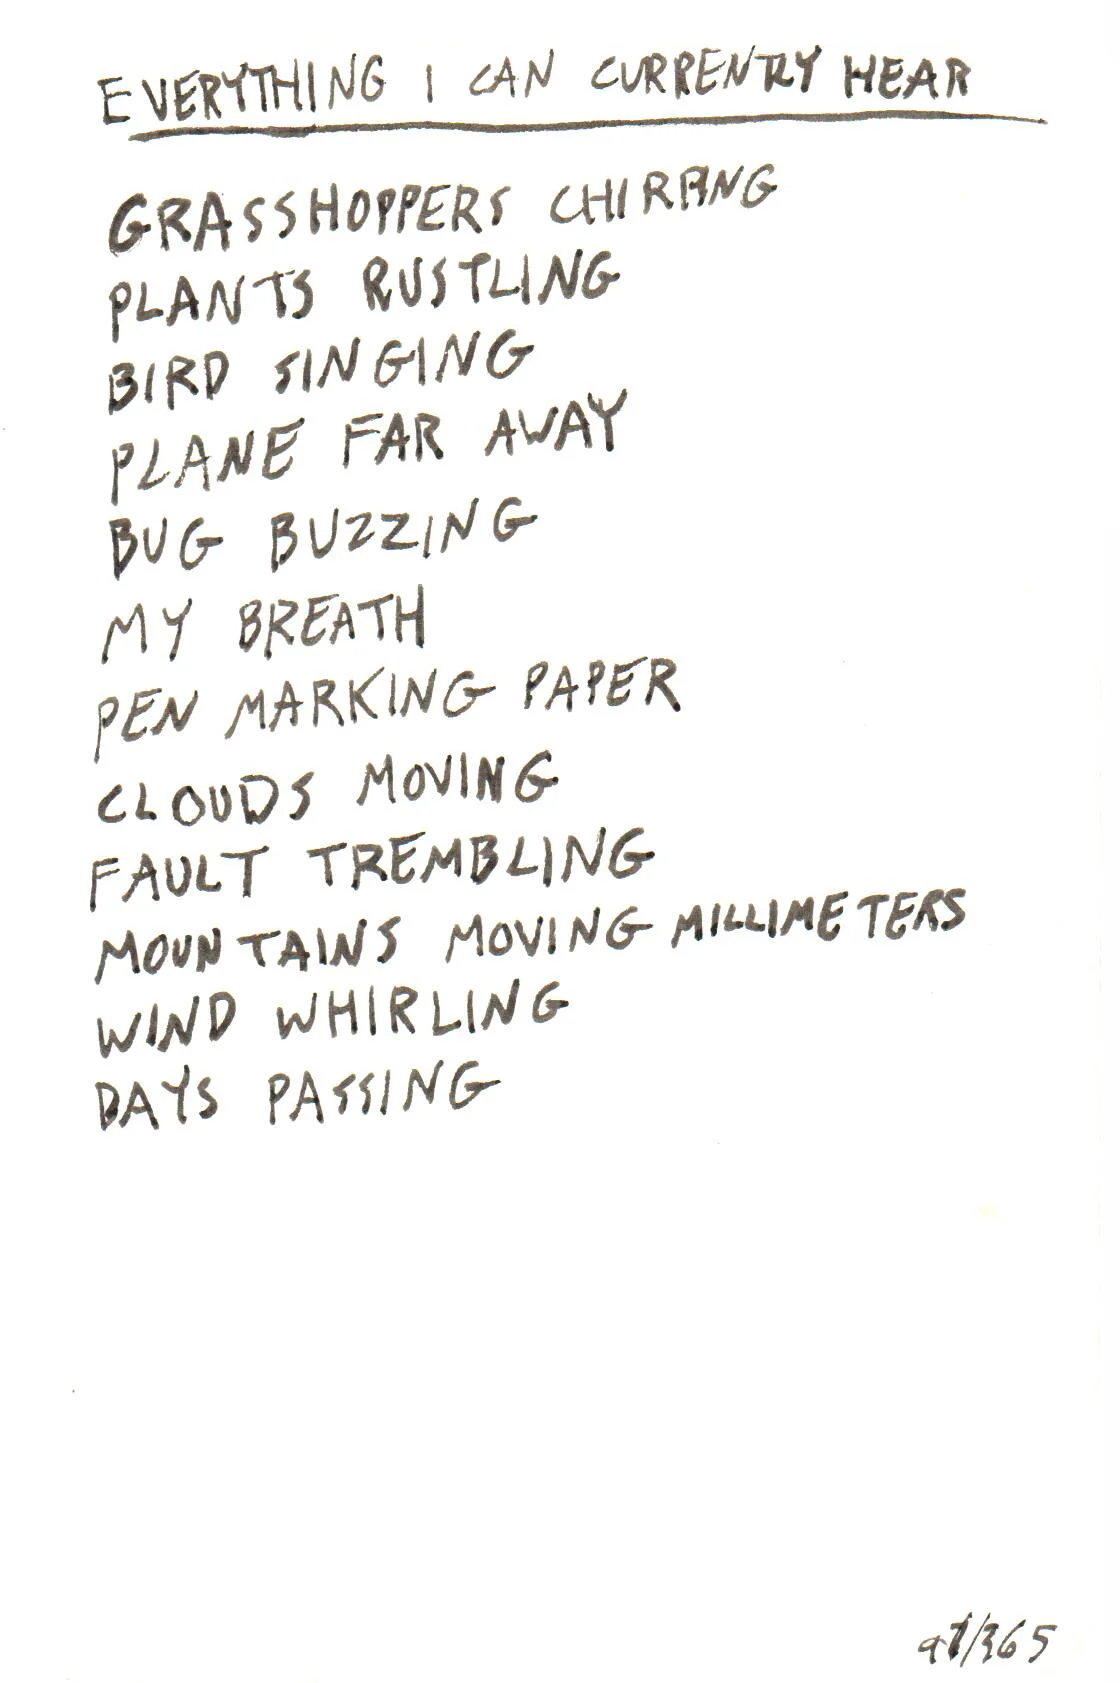 EVERYTHING I CAN CURRENTLY HEAR
GRASSHOPPERS CHIRPING
PLANTS RUSTLING
BIRD SINGING
PLANE FAR AWAY
BUG BUZZING
MY BREATH
PEN MARKING PAPER
CLOUDS MOVING
FAULT TREMBLING
MOUNTAINS MOVING MILLIMETERS
WIND WHIRLING
DAYS PASSING